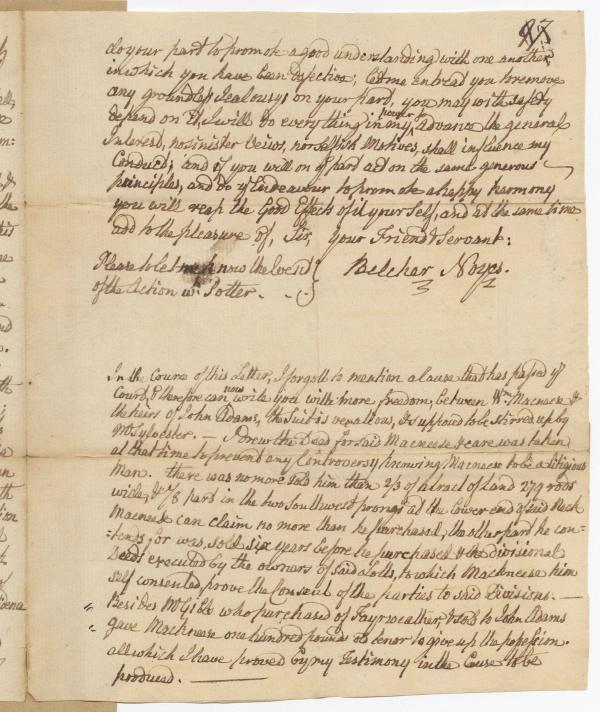 do your part to promote a good understanding with one another,
in which you have been defective, let me entreat you to remove
any groundless Jealousys on your part, you may with safety
depend on it I will do every thing in my power to Advance the general
Interest, no sinister Veiws, nor selfish Motives, shall influence my
Conduct; and if you will on yr part act on the same generous
principles, and do yr Endeavour to promote a happy harmony
you will reap the Good Effects of it your Self, and at the same time
add to the pleasure of, Sir, Your Friend & Servant:
Please to let me know the Event
of the Action wth Potter.
Belcher Noyes.
In the Course of this Letter, I forgott to mention a Cause that has passed ye
Court, & therefore can now write you with more freedom, between Wm Macneese &
the heirs of John Adams, the Suit is vexatious, & supposd to be stirred up by
Mr Sylvester. — I Drew the Deed for said Macneese & care was taken
at that time to prevent any Controversy knowing Macneese to be a litigious
Man. there was no more sold him than 2/3 of a tract of Land 279 rods
wide, & 7/8 part in the two Southwest prongs at the lower end of said Neck
Macneese can claim no more than he purchased, the other part he con-
-tends for was sold six years before he purchased & the Divisional
Deeds executed by the owners of said Lotts, to which Mackneese him
self consented, prove the Consent of the parties to said Divisions. —
Besides Mr Gibbs who purchased of Fayrweather, & sold to John Adams
gave Macknease one hundred pounds old tenor to give up the possession.
all which I have proved by my Testimony in the Cause to be
produced. —